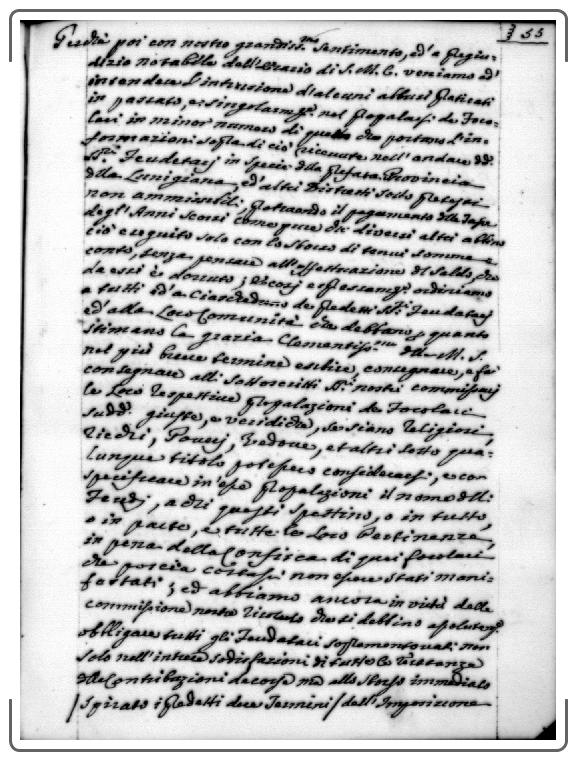 355
Perchè poi con nostro grandiss.mo sentimento, ed' a pregiu-
dizio notabile dell'Erario di S. M. C. veniamo ad'
intendere l'intrusione d'alcuni abusi praticati
in passato, e singolarm.te nel propalarsi de Foco-
lari in minor numero di quello che portano l'in-
formazioni sopra di ciò ricevute nell'andare dd.
SS.ri Feudatarj in specie della presata Provincia
della Lunigiana, ed'altri Distretti sotto pretesti
non ammissibili; protraendo il pagamento delle Tasse
degl'Anni scorsi come pure da diversi altri abbino
ciò eseguito solo con lo sborso di tenui somme a
conto, senza pensare all'effettuazione del saldo, che
da essi è dovuto; ed espressam.te ordiniamo
a tutti ed'a ciascheduno de predetti SS.ri Feudatarj
ed'alle Loro Comunità che debbano p quanto
stimano la grazia Clementiss.ma della M. S.
nel più breve termine esibire, consegnare, e far
consegnare alli Sottoscritti SS.ri nostri commissarj
le Loro respettive propalazioni de Focolari
sudd. giuste, e veridiche, se siano Religiosi,
Ricchi, Poveri, Vedove, et altri sotto qua-
lunque titolo potessero considerarsi, e con
specificare in'esse propalazioni il nome delli
Feudi, a chi questi spettino, o in tutto,
o in parte, e tutte le Loro Pertinenze,
in pena della Confisca di quei Focolari
che poscia costassi non essere stati mani-
festati; ed abbiamo ancora in virtù della
commissione nostra risoluto che si debbino
obbligare tutti gli Feudatarj soprementovati non
solo nell'intiera sodisfazioni di tutte le restanze
delle Contribuzioni decorse ma allo sborso immediato
/spirato i predetti dieci Termini/ dell'Imposizione